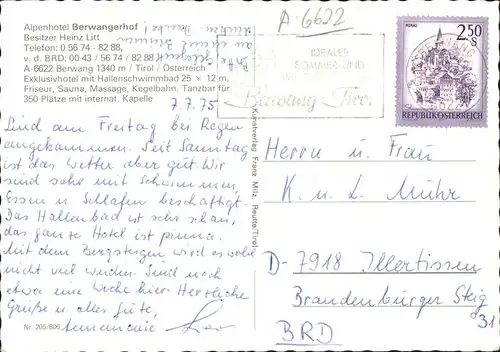 Alpenhotel Berwangerhof
Besitzer Heinz Litt
Telefon: 0 56 74 - 82 88,
v. d. BRD: 00 43 / 56 74 / 82 88
A-6622 Berwang 1340 m / Tirol / Österreich
Exklusivhotel mit Hallenschwimmbad 25 × 12 m,
Friseur, Sauna, Massage, Kegelbahn, Tanzbar für
350 Plätze mit internat. Kapelle
7.7.75
Sind am Freitag bei Regen
angekommen. Seit Samstag
ist das Wetter aber gut. Wir
sind sehr mit Schwimmen,
Essen u. Schlafen beschäftigt.
Das Hallenbad ist sehr schön,
das ganze Hotel ist prima.
Mit dem Bergsteigen wird es wohl
nicht viel werden. Sind noch
etwa eine Woche hier. Herzliche
Grüße u. alles Gute,
Annemarie
Nr. 205/806
Kunstverlag Franz Milz, Reutte/Tirol
A-6622
IDEALER
SOMMER- UND
Berwang-Tirol
MURAU
2.50
S
REPUBLIK ÖSTERREICH
Herrn u. Frau
K. u. L. Mühr
D-7918 Illertissen
Brandenburger Steig
31
BRD